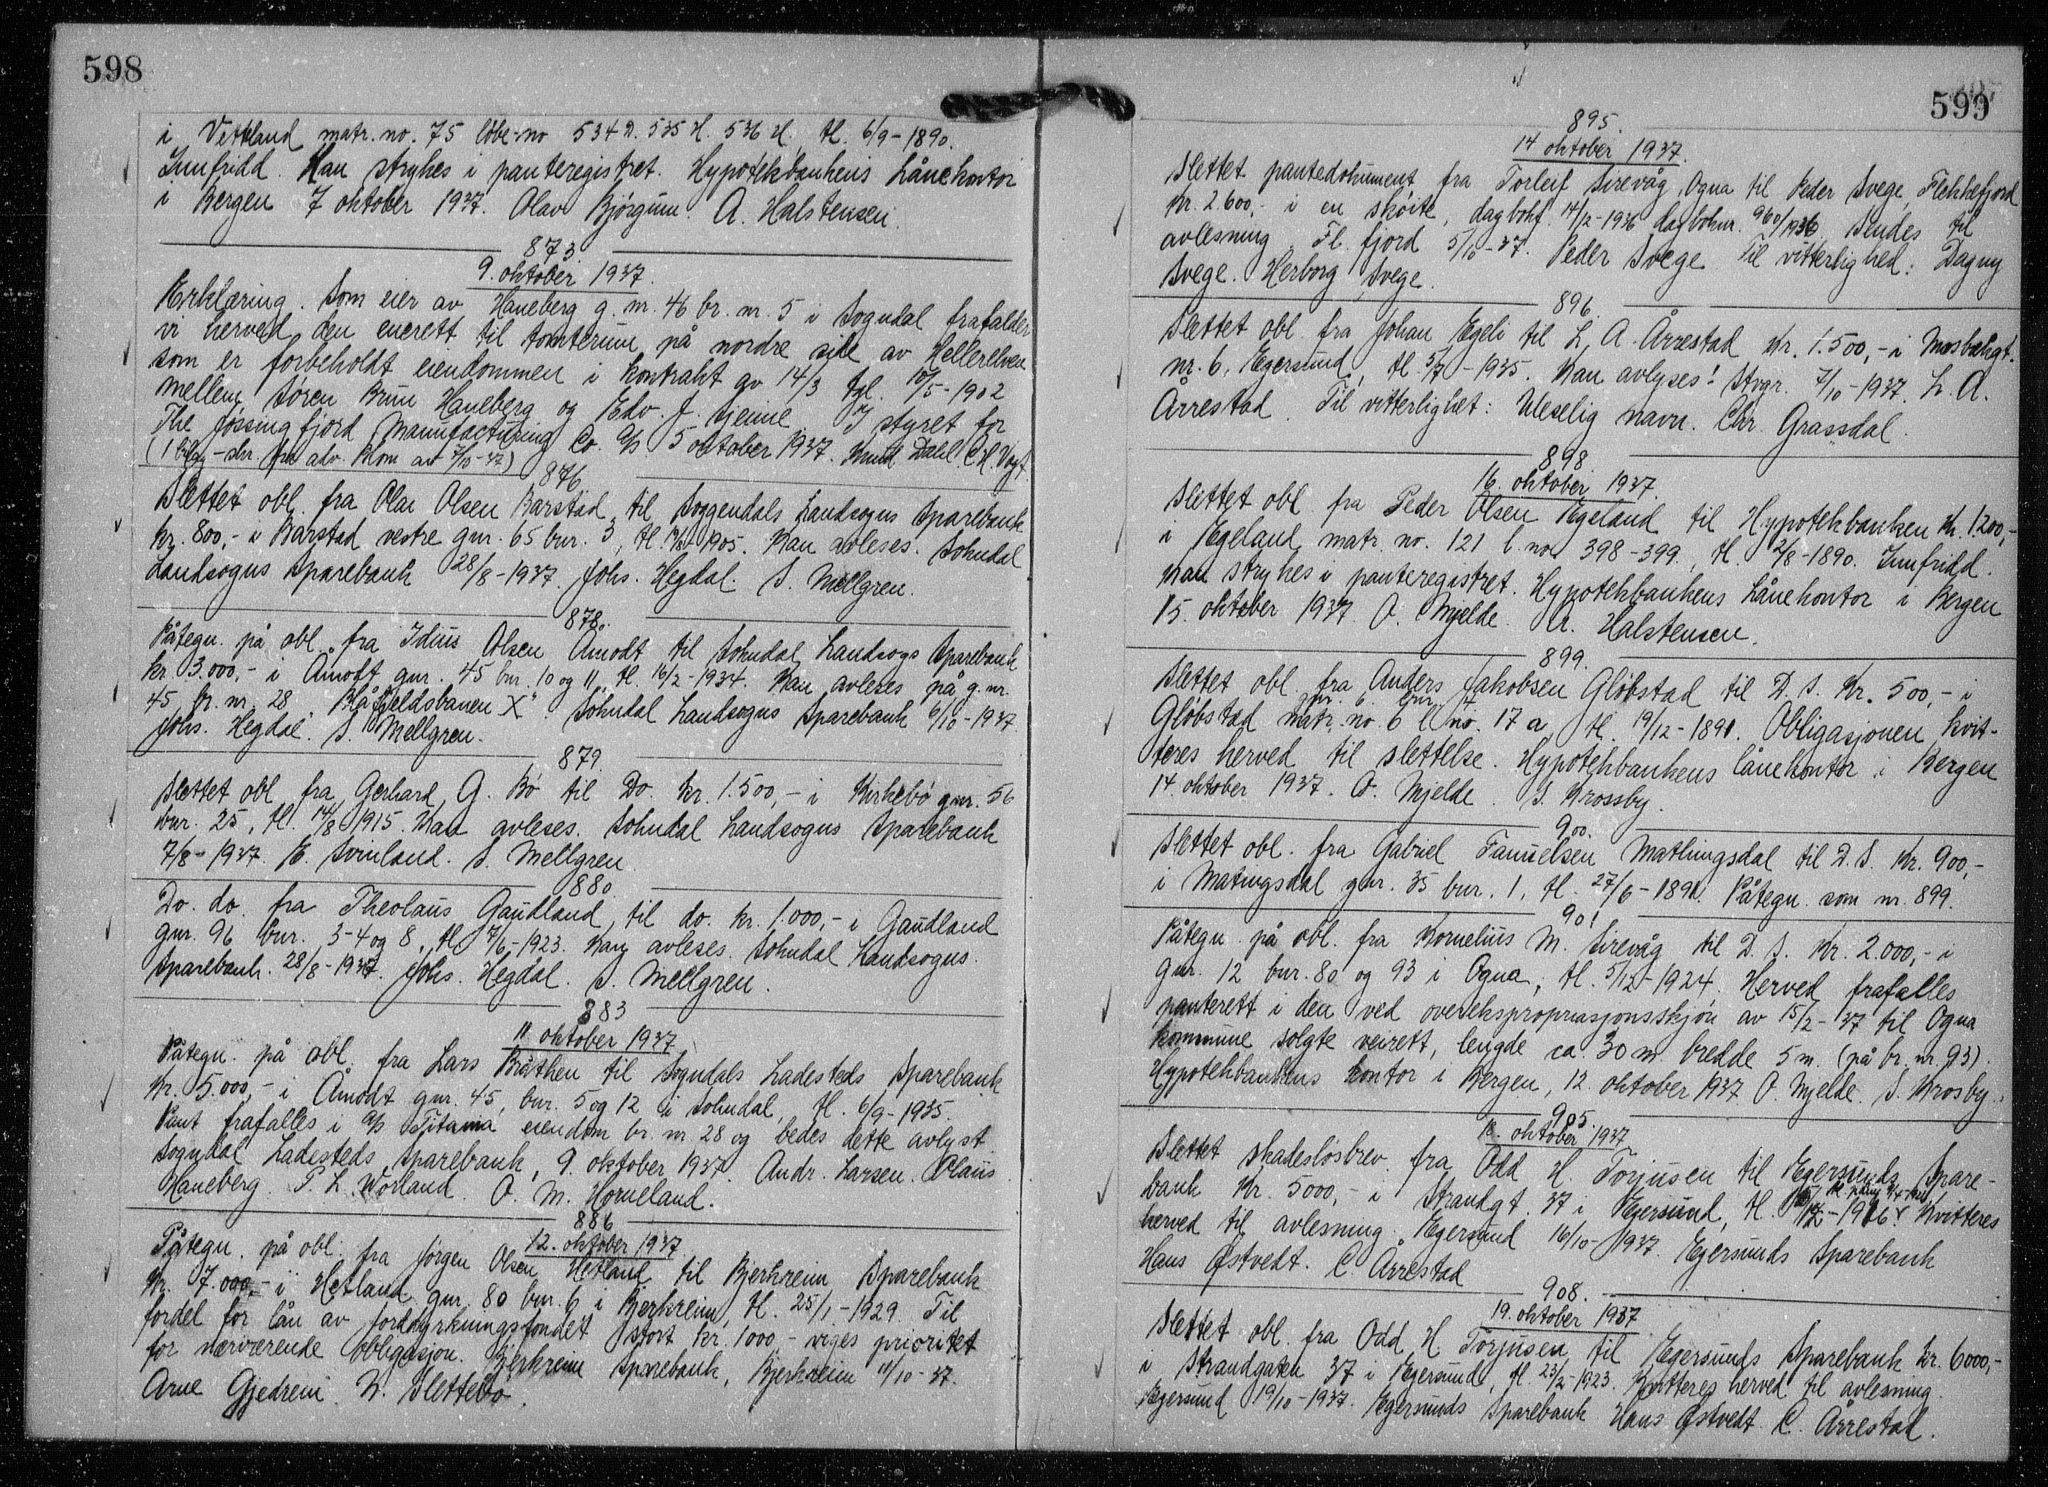 598
i Vettland matr. no. 75 löbe-no 534 a. 535 b. 536 b. tl. 6/9-1890.
Innfridd. Kan strykes i panteregistret. Hypotekbankens Lånekontor
i Bergen 7 oktober 1937. Olav Bjørgum. A. Halstensen.
873
9. oktober 1937.
Erklæring. Som eier av Haneberg g. nr. 46 br. nr. 5 i Sogndal frafalder
vi herved den enerett til tomterum på nordre side av Hellerelven
som er forbeholdt eiendommen i kontrakt av 14/3 tgl. 10/5-1902
mellem Søren Brun Haneberg og Edv. J. I styret for
The Jøssingfjord Manufacturing Co. A/S 5 october 1937. Knud Dahl. C.H. Vogt.
(1 bilag - skr. fra adv. Blom av 7/10-37)
876
Slettet obl. fra Olai Olsen Barstad til Soggendals Landsogns Sparebank
kr. 800,- i Barstad vestre gnr. 65 bnr. 3, tl. 1905. Kan avleses. Sokndal
Landsogns Sparebank 28/8-1937. Johs. Hegdal. S. Mellgren.
878.
Påtegn. på obl. fra Idius Olsen Åmodt til Sokndal Landsogs Sparebank
kr. 3.000,- i Åmodt gnr. 45 bnr. 10 og 11, tl. 16/2-1934. Kan avleses på g. nr.
45 br. nr. 28 "Blåfjeldsbanen X". Sokndal Landsogns Sparebank 6/10-1937
Johs. Hegdal. S. Mellgren.
879.
Slettet obl. fra Gerhard G. Bö til Do. kr. 1.500,- i Kirkebö gnr. 56
bnr. 25, tl. 14/8 1915. Kan avleses. Sokndal Landsogns Sparebank
7/8-1937. E. Svinland. S. Mellgren.
880
Do. do. fra Theolaus Gaudland til do. kr. 1.000,- i Gaudland
gnr. 96 bnr. 3-4 og 8, tl. 7/6-1923. Kan avleses. Sokndal Landsogns.
Sparebank. 28/8-1937. Johs. Hegdal. S. Mellgren.
883
11 oktober 1937
Påtegn. på obl. fra Lars Bråthen til Sogndals Ladesteds Sparebank
Kr. 5.000,- i Åmodt gnr. 45, bnr. 5 og 12 i Sokndal, tl. 6/9-1935.
Pant frafalles i A/S Titania eiendom br. nr. 28 og bedes dette avlyst
Sogndal Ladesteds Sparebank, 9. oktober 1937. Andr. Larsen. Olaus
Haneberg. P. L. Wørland. O. M. Horneland.
886
12. oktober 1937.
Påtegn. på obl. fra Jørgen Olsen Hetland til Bjerkreim Sparebank
Kr. 7.000,- i Hetland gnr. 80 bnr. 6 i Bjerkreim, tl. 25/1-1929. Til
fordel for lån av Jorddyrkningsfondet stort kr. 1000,- viges prioritet
for nærværende obligasjon. Bjerkreim Sparebank, Bjerkreim 11/10-37.
Arne Gjedrem. N. Slettebö.
599
895.
14 oktober 1937.
Slettet pantedokument fra Torleif Sirevåg, Ogna til Peder Svege, Flekkefjord
Kr. 2.600,- i en skøite, dagbokf. 14/12-1936 dagboknr. 960/1936. Sendes til
avlesning. Fl. fjord 5/10-37. Peder Svege. Til vitterlighed: Dagny
Svege. Herborg Svege.
896.
Slettet obl. fra Johan Egeli til L. A. Årrestad kr. 1.500,- i Mosbækgt.
nr. 6, Egersund, tl. 5/7-1935. Kan avlyses! Stvgr. 7/10-1937. L. A.
Årrestad. Til vitterlighet: Uleselig navn. Chr. Grassdal.
898
16. oktober 1937.
Slettet obl. fra Peder Olsen Egeland til Hypotekbanken kr. 1200,-
i Egeland matr. no. 121 l. no. 398-399, tl. 2/8-1890. Innfridd.
Kan strykes i panteregistret. Hypotekbankens Lånekontor i Bergen
15. oktober 1937. O. Mjelde. A. Halstensen.
899.
Slettet obl. fra Anders Jakobsen Gløbstad til D. S. Kr. 500,- i
gnr. 6. bnr. 14
Gløbstad matr. no. 6 l. no. 17 a, tl. 19/12-1891. Obligasjonen kvit-
teres herved til slettelse. Hypotekbankens lånekontor i Bergen
14. oktober 1937. O. Mjelde. S. Krossby.
900.
Slettet obl. fra Gabriel Samuelsen Matningsdal til D. S. Kr. 900,-
i Matningsdal gnr. 35 bnr. 1, tl. 27/6-1891. Påtegn. som nr. 899.
901
Påtegn. på obl. fra Kornelius M. Sirevåg til D. S. Kr. 2.000,- i
gnr. 12 bnr. 80 og 93 i Ogna, tl. 5/12-1924. Herved frafalles
panterett i den ved overekspropriasjonsskjön av 15/2-37 til Ogna
kommune solgte veirett, lengde ca. 30 m. bredde 5 m. (på br. nr. 93).
Hypotekbankens kontor i Bergen, 12. oktober 1937 O. Mjelde. S. Krosby.
905
18. oktober 1937
Slettet skadesløsbrev fra Odd H. Torjusen til Egersunds Spare-
bank kr. 5000,- i Strandgt. 37 i Egersund, tl. 1926. Kvitteres
herved til avlesning. Egersund 16/10-1937. Egersunds Sparebank
Hans Østvedt. C. Årrestad
908.
19. oktober 1937
Slettet obl. fra Odd H. Torjusen til Egersunds Sparebank kr. 6000,-
i Strandgaten 37 i Egersund, tl. 23/2-1923. Kvitteres herved til avlesning.
Egersund 19/10-1937. Egersunds Sparebank Hans Østvedt. C. Årrestad.